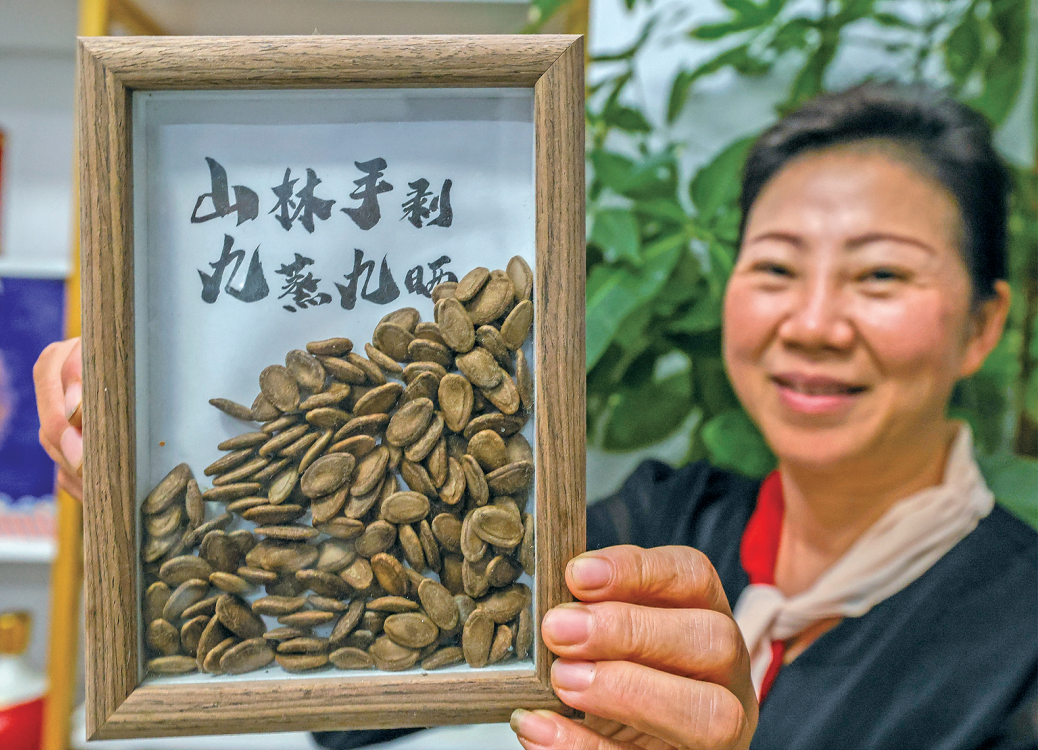 山林手剥
九蒸九晒